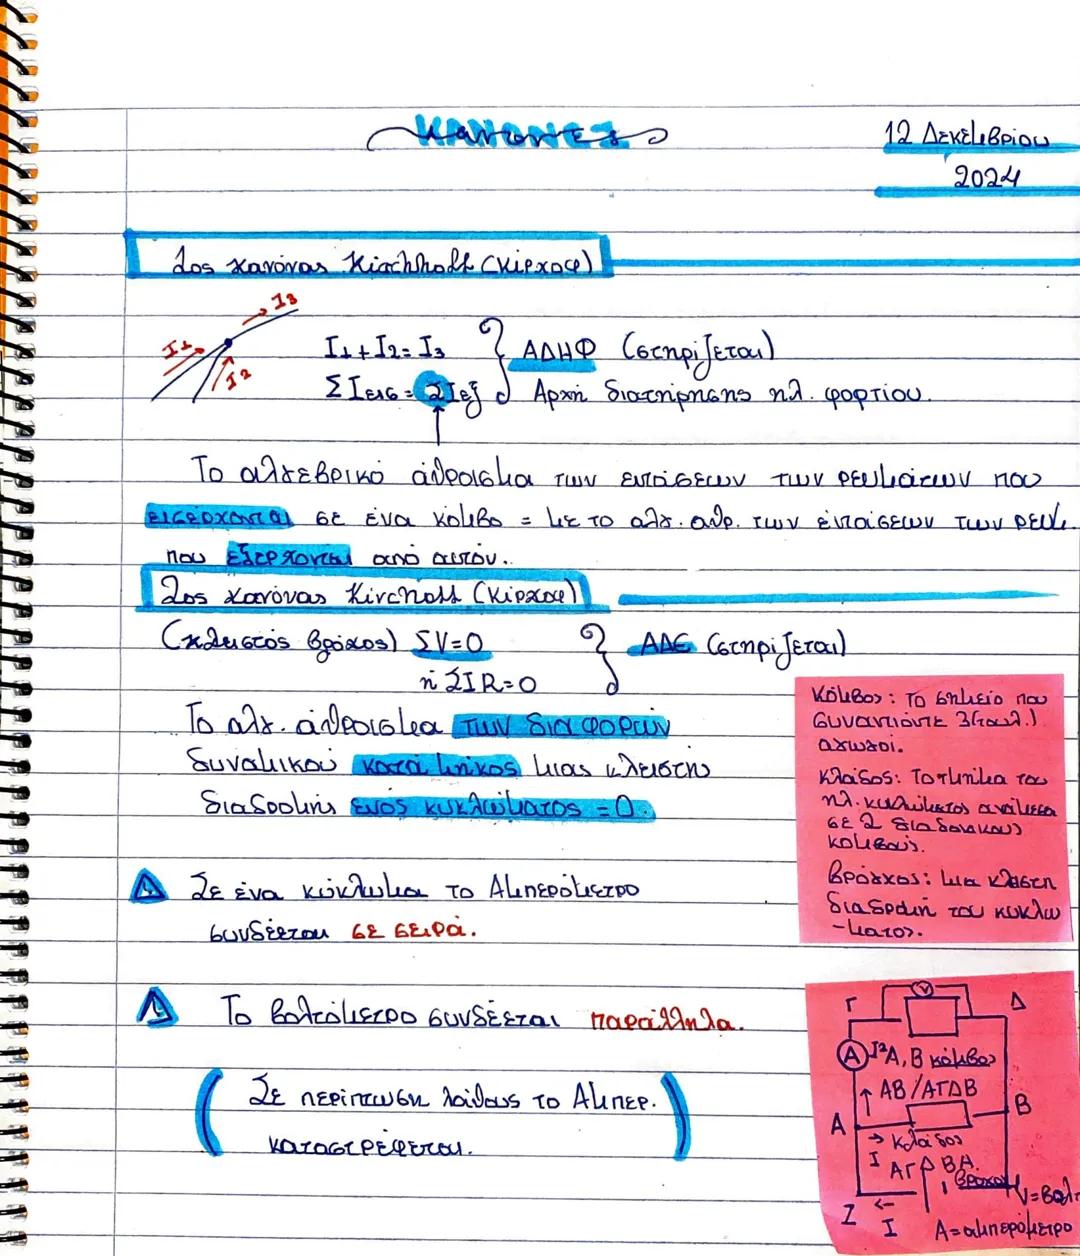 ΚΑΝΟΝΕΣ
12 Δεκεμβρίου
2024
1ος κανόνας Kirchhoff (Κίρχοφ)
I3
I1
I2
I1+I2=I3
ΣΙεισ=ΣΙεξ
ΑΔΗΦ (στηρίζεται)
Αρχή διατήρησης ηλ. φορτίου.
Το αλγεβρικό άθροισμα των εντάσεων των ρευμάτων που
εισέρχονται σε ένα κόμβο = με το αλγ. αθρ. των εντάσεων των ρευμ.
που εξέρχονται από αυτόν.
2ος κανόνας Kirchoff (Κίρχοφ)
(κλειστός βρόχος) ΣV=0
ή ΣIR=0
ΑΔΕ (στηρίζεται)
Το αλγ. άθροισμα των διαφορών
δυναμικού κατά μήκος μιας κλειστής
διαδρομής ενός κυκλώματος =0.
Κόμβος: Το σημείο που
συναντιόντε 3(τουλ.)
αγωγοί.
Κλάδος: Το τμήμα του
ηλ. κυκλώματος ανάμεσα
σε 2 διαδοχικούς
κόμβους.
Βρόγχος: μια κλειστη
διαδρομή του κυκλώ
-ματος.
Σε ένα κύκλωμα το Αμπερόμετρο
συνδέεται σε σειρά.
Το βολτόμετρο συνδέεται παράλληλα.
(Σε περίπτωση λάθους το Αμπερ.
καταστρέφεται.)
V
Γ
Δ
A
A,B κόμβος
ΑΒ/ΑΓΔΒ
A
B
→ Κλάδος
I
ΑΓΔΒΑ.
βρόχος
V=βολτ
Ζ
←
I
A=αμπερόμετρο